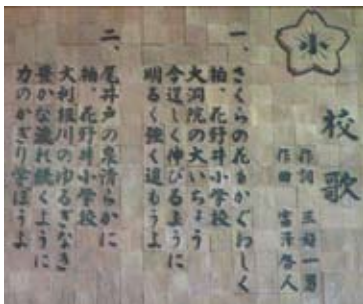 小
校歌
作詞 三好一男
作曲 宮澤啓人
一、
さくらの花もかぐわしく
柏、花野井小学校
大洞院の大いちょう
今逞しく伸びるように
明るく強く進もうよ
二、
尾井戸の泉清らかに
柏、花野井小学校
大利根川のゆるぎなき
豊かな流れ続くように
力のかぎり学ぼうよ